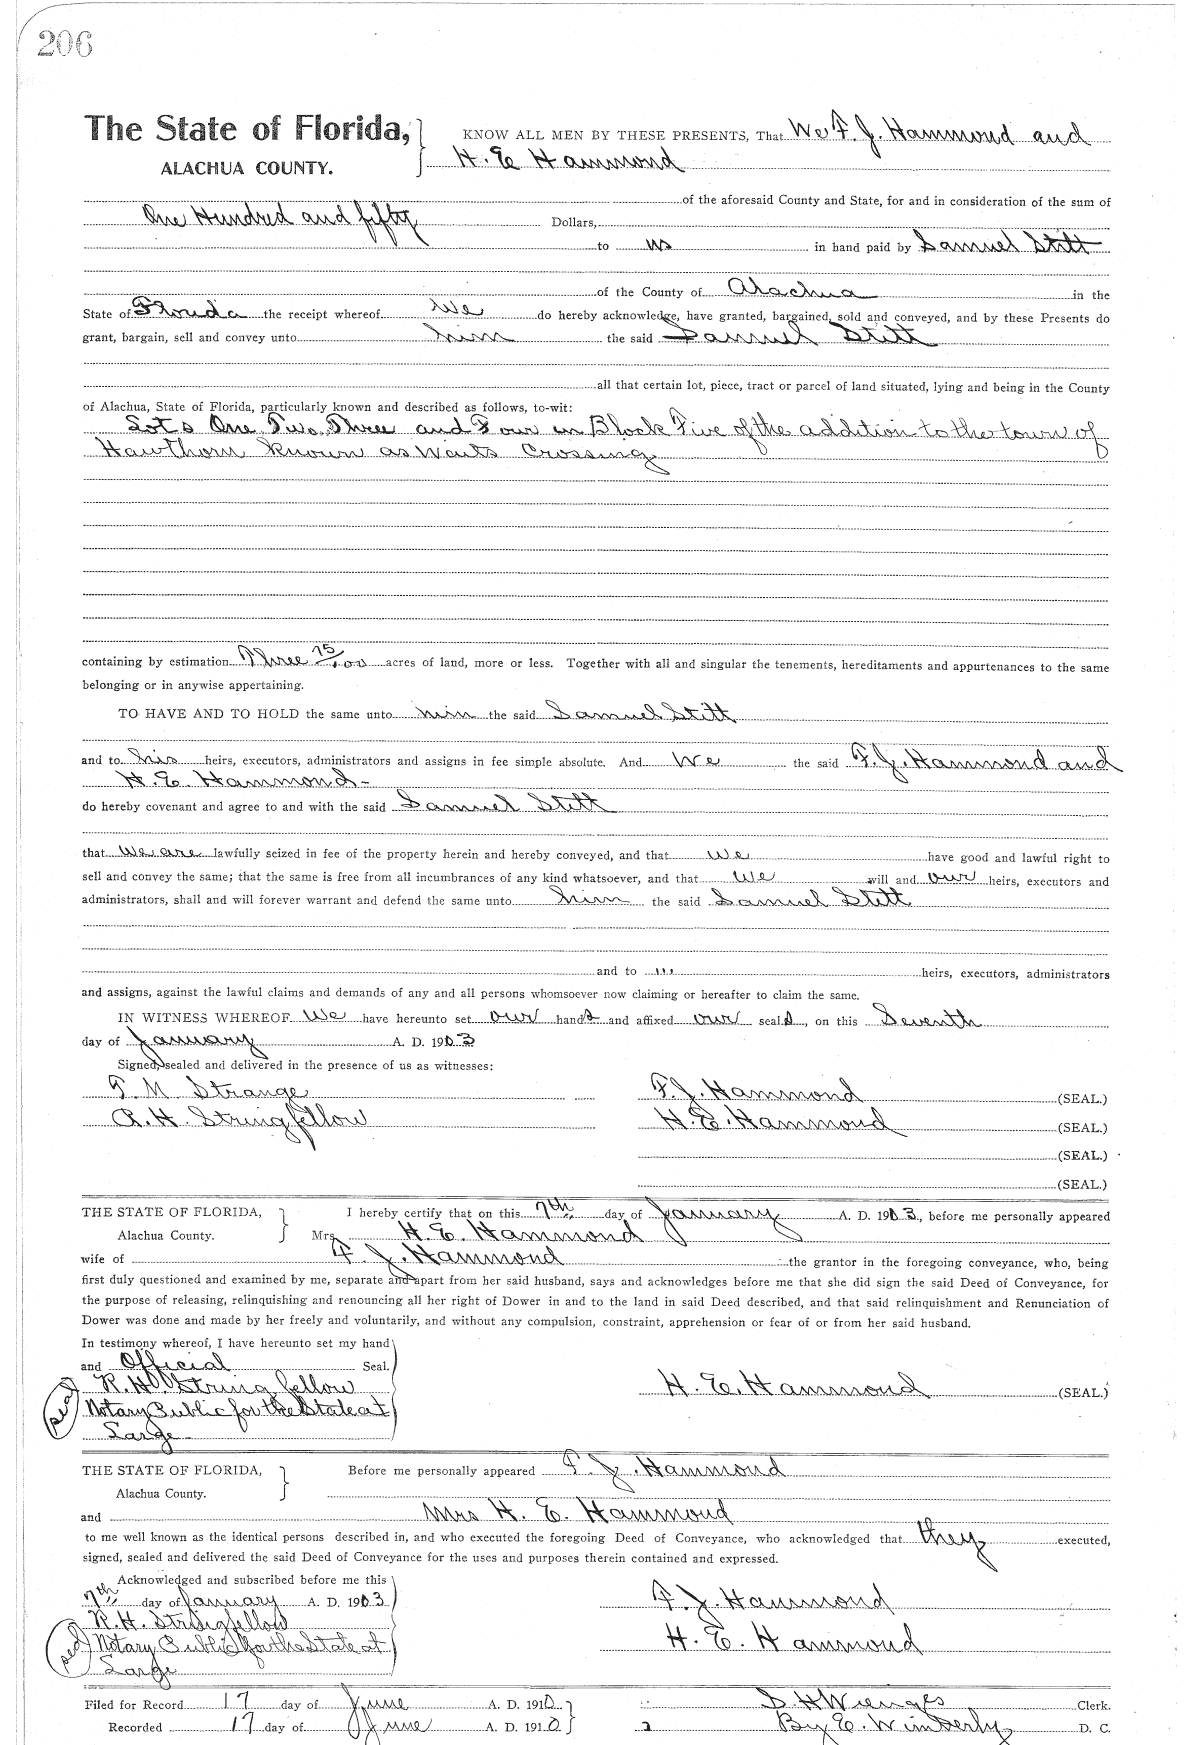 206
The State of Florida,
ALACHUA COUNTY.
KNOW ALL MEN BY THESE PRESENTS, That We F. J. Hammond and
H. E Hammond
of the aforesaid County and State, for and in consideration of the sum of
One Hundred and fifty Dollars,
to us in hand paid by Samuel Stitt
of the County of Alachua in the
State of Florida the receipt whereof We do hereby acknowledge, have granted, bargained, sold and conveyed, and by these Presents do
grant, bargain, sell and convey unto him the said Samuel Stitt
all that certain lot, piece, tract or parcel of land situated, lying and being in the County
of Alachua, State of Florida, particularly known and described as follows, to-wit:
Lots One Two Three and Four in Block Five of the addition to the town of
Hawthorn Known as Waits Crossing
containing by estimation Three 75/100 acres of land, more or less. Together with all and singular the tenements, hereditaments and appurtenances to the same
belonging or in anywise appertaining.
TO HAVE AND TO HOLD the same unto him the said Samuel Stitt
and to his heirs, executors, administrators and assigns in fee simple absolute. And We the said F. J. Hammond and
H. E. Hammond -
do hereby covenant and agree to and with the said Samuel Stitt
that We are lawfully seized in fee of the property herein and hereby conveyed, and that we have good and lawful right to
sell and convey the same; that the same is free from all incumbrances of any kind whatsoever, and that We will and our heirs, executors and
administrators, shall and will forever warrant and defend the same unto him the said Samuel Stitt
and to "' heirs, executors, administrators
and assigns, against the lawful claims and demands of any and all persons whomsoever now claiming or hereafter to claim the same.
IN WITNESS WHEREOF We have hereunto set our hands and affixed our seals, on this Seventh
day of January A. D. 1903
Signed, sealed and delivered in the presence of us as witnesses:
T. M. Strange F. J. Hammond (SEAL.)
R. H. Stringfellow H. E. Hammond (SEAL.)
(SEAL.)
(SEAL.)
THE STATE OF FLORIDA,
Alachua County.
I hereby certify that on this 7th day of January A. D. 1903, before me personally appeared
Mrs H. E. Hammond
wife of F. J. Hammond the grantor in the foregoing conveyance, who, being
first duly questioned and examined by me, separate and apart from her said husband, says and acknowledges before me that she did sign the said Deed of Conveyance, for
the purpose of releasing, relinquishing and renouncing all her right of Dower in and to the land in said Deed described, and that said relinquishment and Renunciation of
Dower was done and made by her freely and voluntarily, and without any compulsion, constraint, apprehension or fear of or from her said husband.
In testimony whereof, I have hereunto set my hand
and Official Seal.
R. H. Stringfellow H. E. Hammond (SEAL.)
seal Notary Public for the State at
Large
THE STATE OF FLORIDA,
Alachua County.
Before me personally appeared F. J. Hammond
and Mrs H. E. Hammond
to me well known as the identical persons described in, and who executed the foregoing Deed of Conveyance, who acknowledged that they executed,
signed, sealed and delivered the said Deed of Conveyance for the uses and purposes therein contained and expressed.
Acknowledged and subscribed before me this
7th day of January A. D. 1903 F. J. Hammond
R. H. Stringfellow
seal Notary Public for the State at H. E. Hammond
Large
Filed for Record 17 day of June A. D. 1910 S. H Wienges Clerk.
Recorded 17 day of June A. D. 1910 By E. Wimberly D. C.